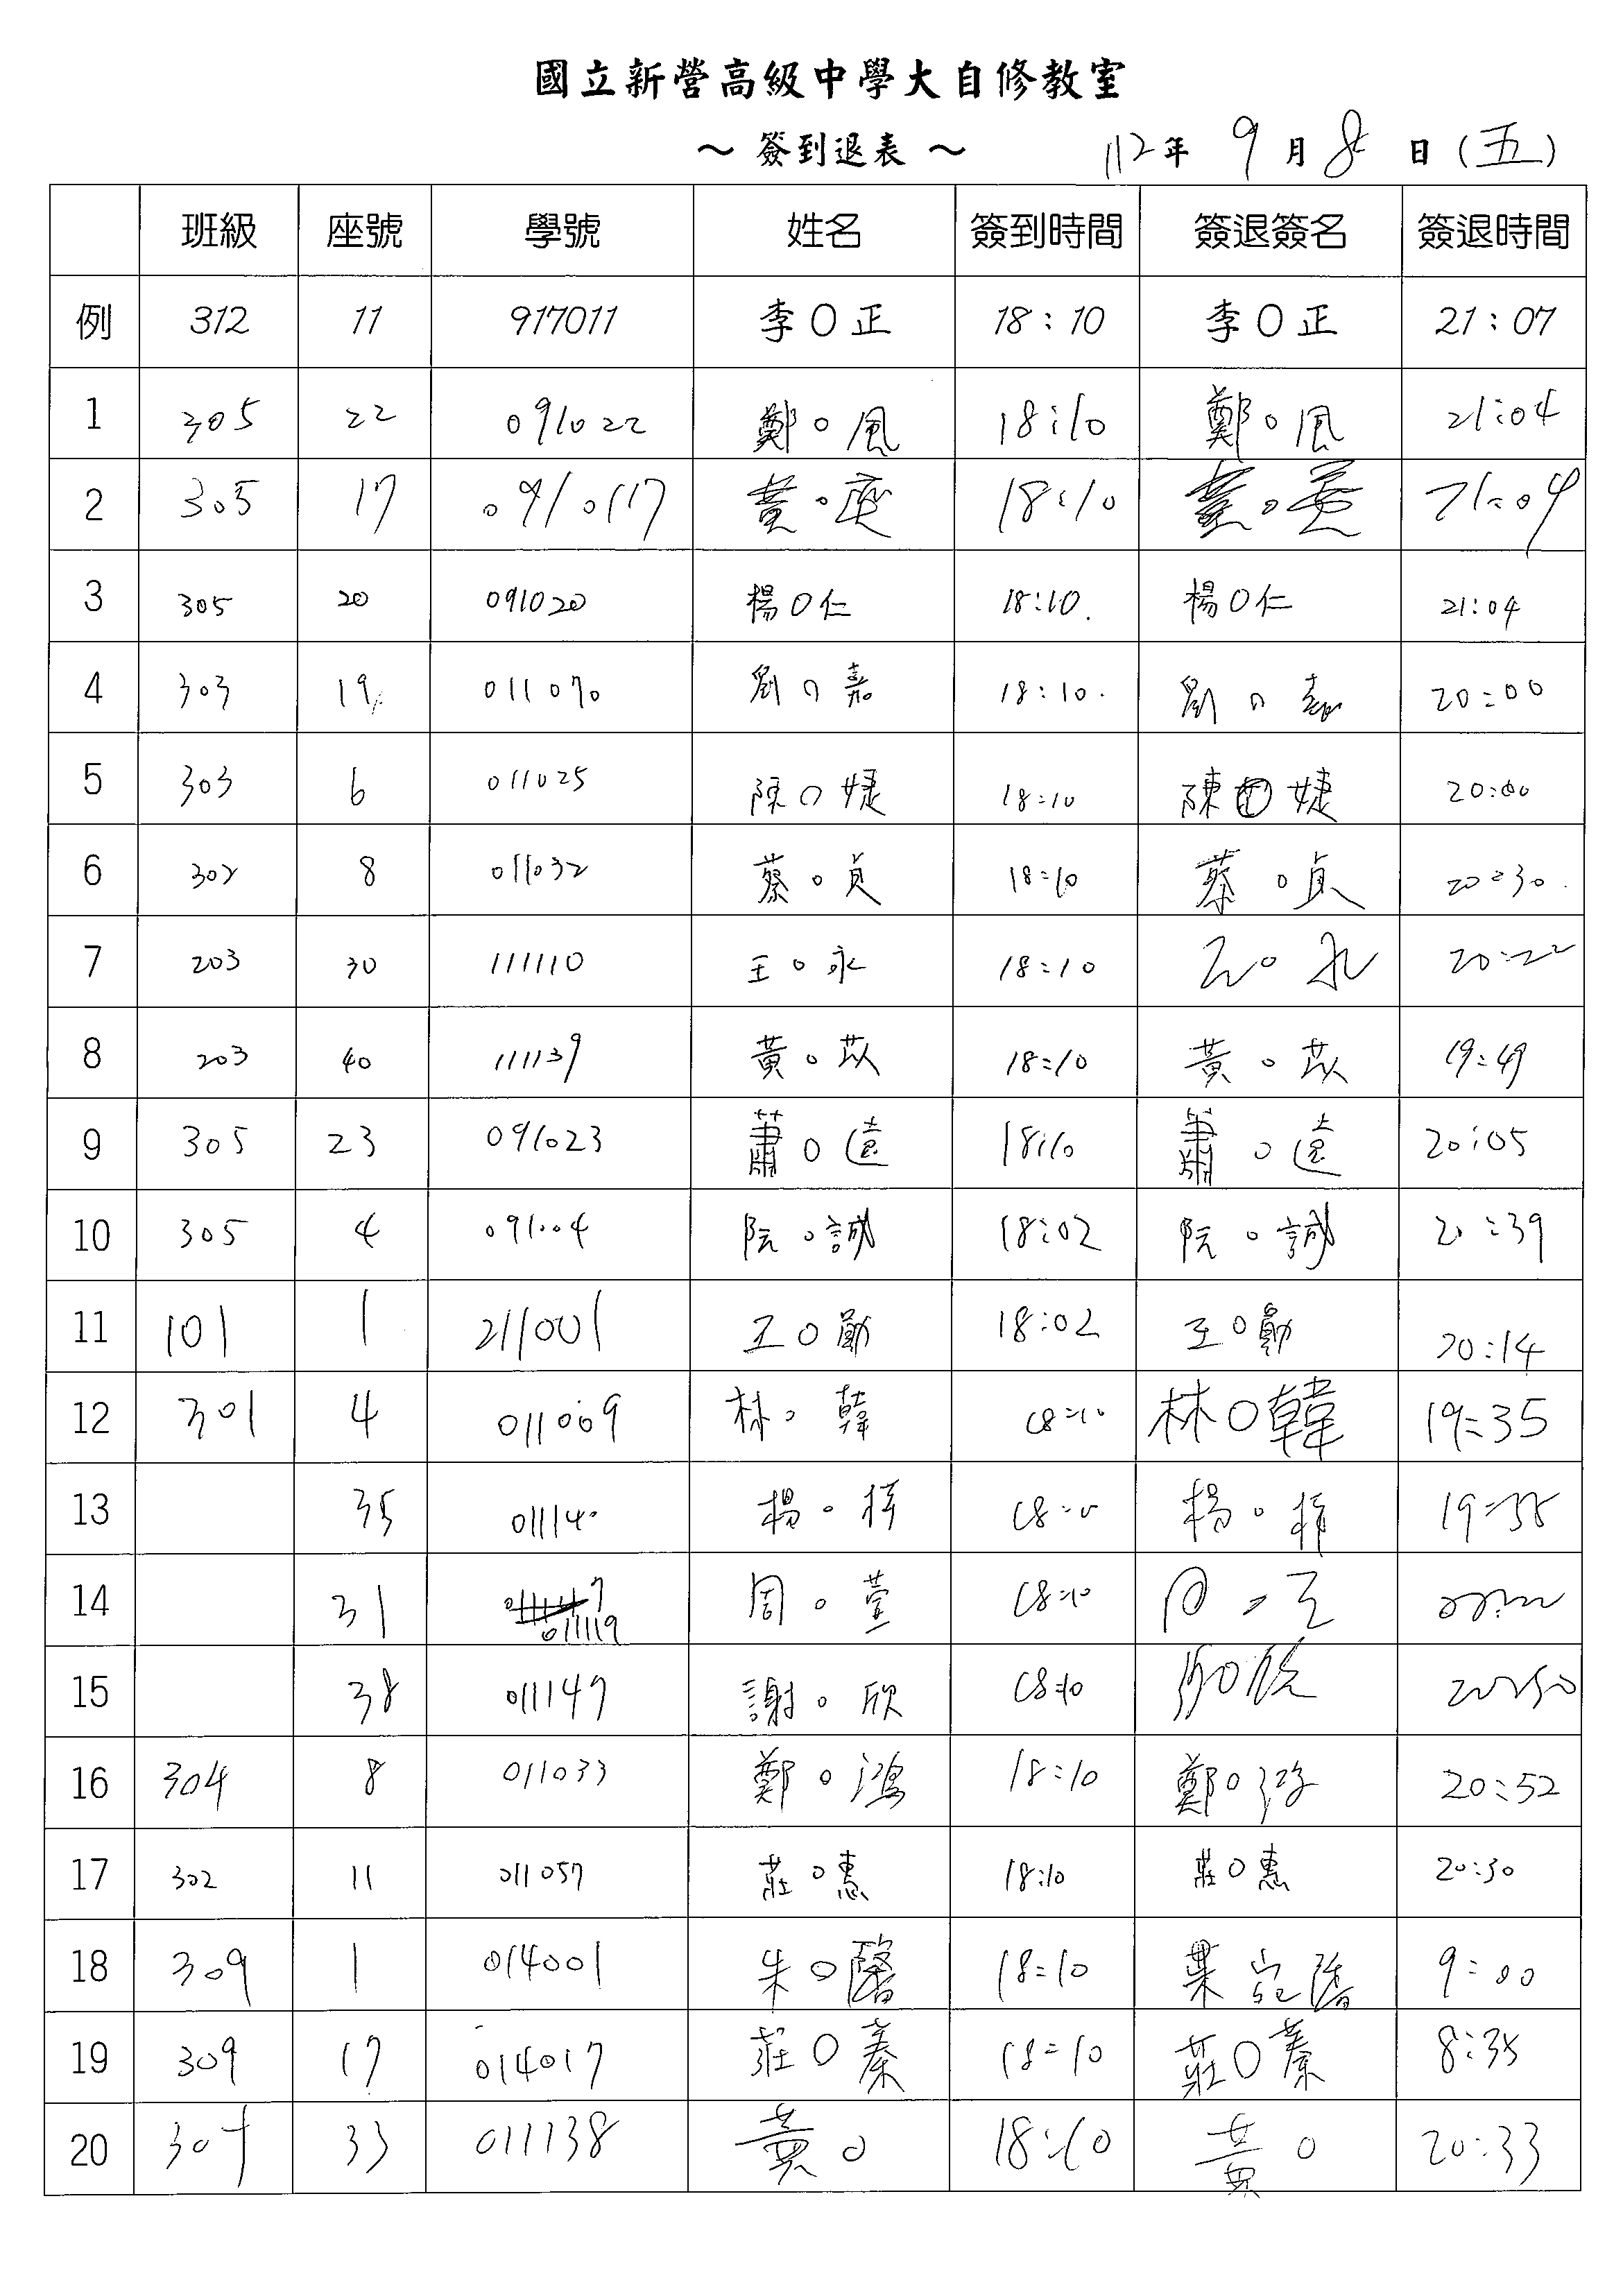 國立新營高級中學大自修教室
～ 簽到退表 ～ 112年 9月8日(五)
班級 座號 學號 姓名 簽到時間 簽退簽名 簽退時間
例 312 11 917011 李O正 18:10 李O正 21:07
1 305 22 091022 鄭O風 18:10 鄭O風 21:04
2 305 17 091017 黃O 18:10 21:04
3 305 20 091020 楊O仁 18:10. 楊O仁 21:04
4 303 19 011070 劉O嘉 18:10. 劉O嘉 20:00
5 303 6 011025 陳O婕 18:10 陳O婕 20:00
6 302 8 011032 蔡O貞 18:10 蔡O貞 20:30.
7 203 30 111110 王O永 18:10 王O永 20:22
8 203 40 111139 黃O苡 18:10 黃O苡 19:49
9 305 23 091023 蕭O遠 18:10 蕭O遠 20:05
10 305 4 091004 阮O誠 18:02 阮O誠 20:39
11 101 1 211001 王O勛 18:02 王O勛 20:14
12 301 4 011009 林O韓 18:10 林O韓 19:35
13 35 011140 楊O 18:10 楊O
14 31 011119 周O萱 18:10
15 38 011147 謝O欣 18:10
16 304 8 011033 鄭O鴻 18:10 鄭O鴻 20:52
17 302 11 011057 莊O惠 18:10 莊O惠 20:30
18 309 1 014001 朱O醫 18:10 9:00
19 309 17 014017 莊O蓁 18:10 莊O蓁 8:35
20 304 33 011138 黃O 18:10 黃O 20:33